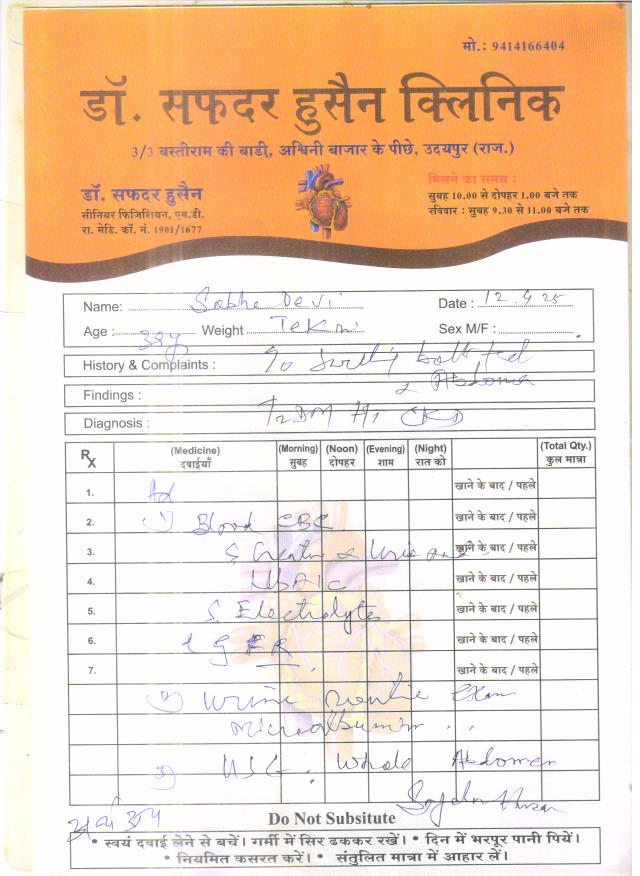 मो.: 9414166404
डॉ. सफदर हुसैन क्लिनिक
3/3 बस्तीराम की बाडी, अश्विनी बाजार के पीछे, उदयपुर (राज.)
डॉ. सफदर हुसैन
सीनियर फिजिशियन, एम.डी.
रा. मेडि. कॉ. नं. 1901/1677
मिलने का समय :
सुबह 10.00 से दोपहर 1.00 बजे तक
रविवार : सुबह 9.30 से 11.00 बजे तक
Name: Devi Date :
Age : Weight Sex M/F :
History & Complaints :
Abdomen
Findings :
Diagnosis : T2DM CKD
Rx (Medicine) दवाईयाँ (Morning) सुबह (Noon) दोपहर (Evening) शाम (Night) रात को (Total Qty.) कुल मात्रा
1. Ad खाने के बाद / पहले
2. 1) Blood CBC खाने के बाद / पहले
3. S. Uric खाने के बाद / पहले
4. HbA1c खाने के बाद / पहले
5. S. Electrolytes खाने के बाद / पहले
6. खाने के बाद / पहले
7. खाने के बाद / पहले
2) Urine Exam
Microalbumin
3) USG. Whole Abdomen
Do Not Subsitute
• स्वयं दवाई लेने से बचें। गर्मी में सिर ढककर रखें। • दिन में भरपूर पानी पियें।
• नियमित कसरत करें। • संतुलित मात्रा में आहार लें।